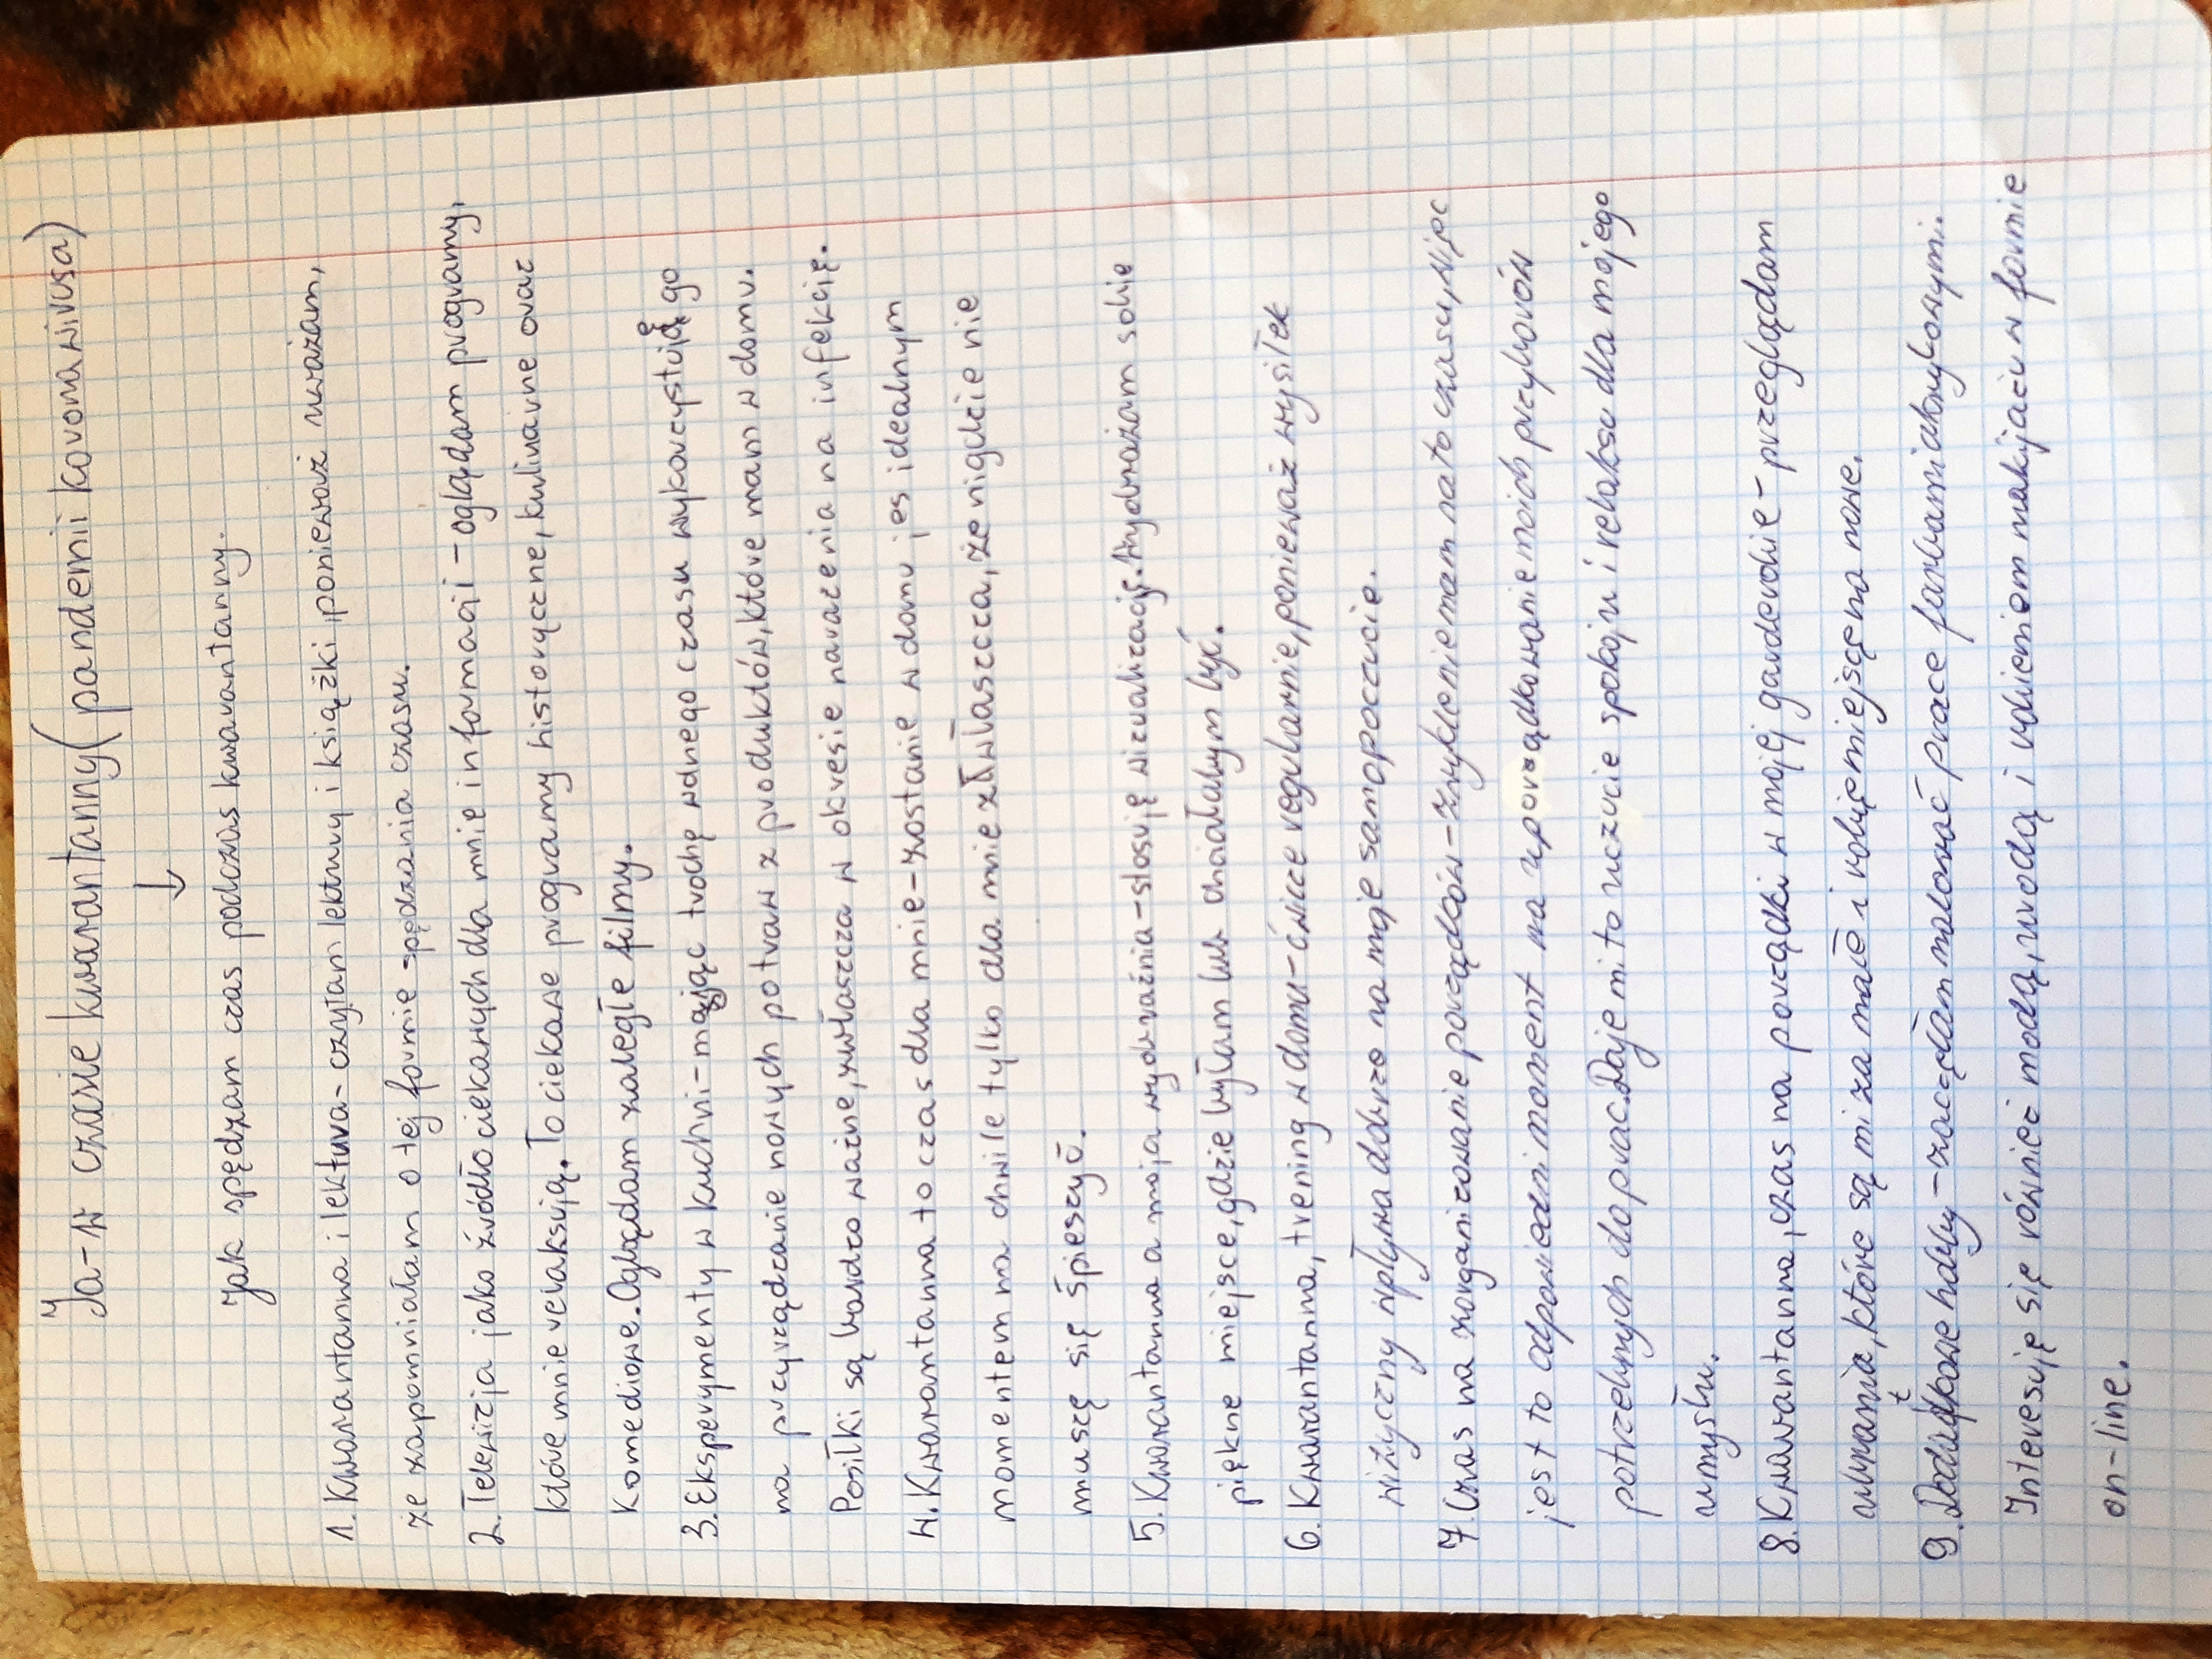 Ja-w czasie kwarantanny(pandemii koronawirusa)
↓
Jak spędzam czas podczas kwarantanny.
1. Kwarantanna i lektura- czytam lektury i książki, ponieważ uważam,
że zapomniałam o tej formie spędzania czasu.
2. Telewizja jako źródło ciekawych dla mnie informacji - oglądam programy,
które mnie relaksują. To ciekawe programy historyczne, kulinarne oraz
komediowe. Oglądam zaległe filmy.
3. Eksperymenty w kuchni - mając trochę wolnego czasu wykorzystuję go
na przyrządzanie nowych potraw z produktów, które mam w domu.
Posiłki są bardzo ważne, zwłaszcza w okresie narażenia na infekcję.
4. Kwarantanna to czas dla mnie - zostanie w domu jes idealnym
momentem na chwile tylko dla mnie zwłaszcza, że nigdzie nie
muszę się śpieszyć.
5. Kwarantanna a moja wyobraźnia - stosuję wizualizację. Wyobrażam sobie
piękne miejsce, gdzie byłam lub chciałabym być.
6. Kwarantanna, trening w domu - ćwicze regularnie, ponieważ wysiłek
wizyczny wpływa dobrze na moje samopoczucie.
7. Czas na zorganizowanie porządków - zwykle nie mam na to czasu, więc
jest to odpowiedni moment na uporządkowanie moich przyborów
potrzebnych do prac. Daje mi to uczucie spokoju i relaksu dla mojego
umysłu.
8. Kwarantanna, czas na porządki w mojej garderobie - przeglądam
ubrania, które są mi za małe i robię miejsce na nowe.
9. Dodatkowe hobby - zaczęłam malować prace farbami akrylowymi.
Interesuję się również modą, urodą i robieniem makijażu w formie
on-line.